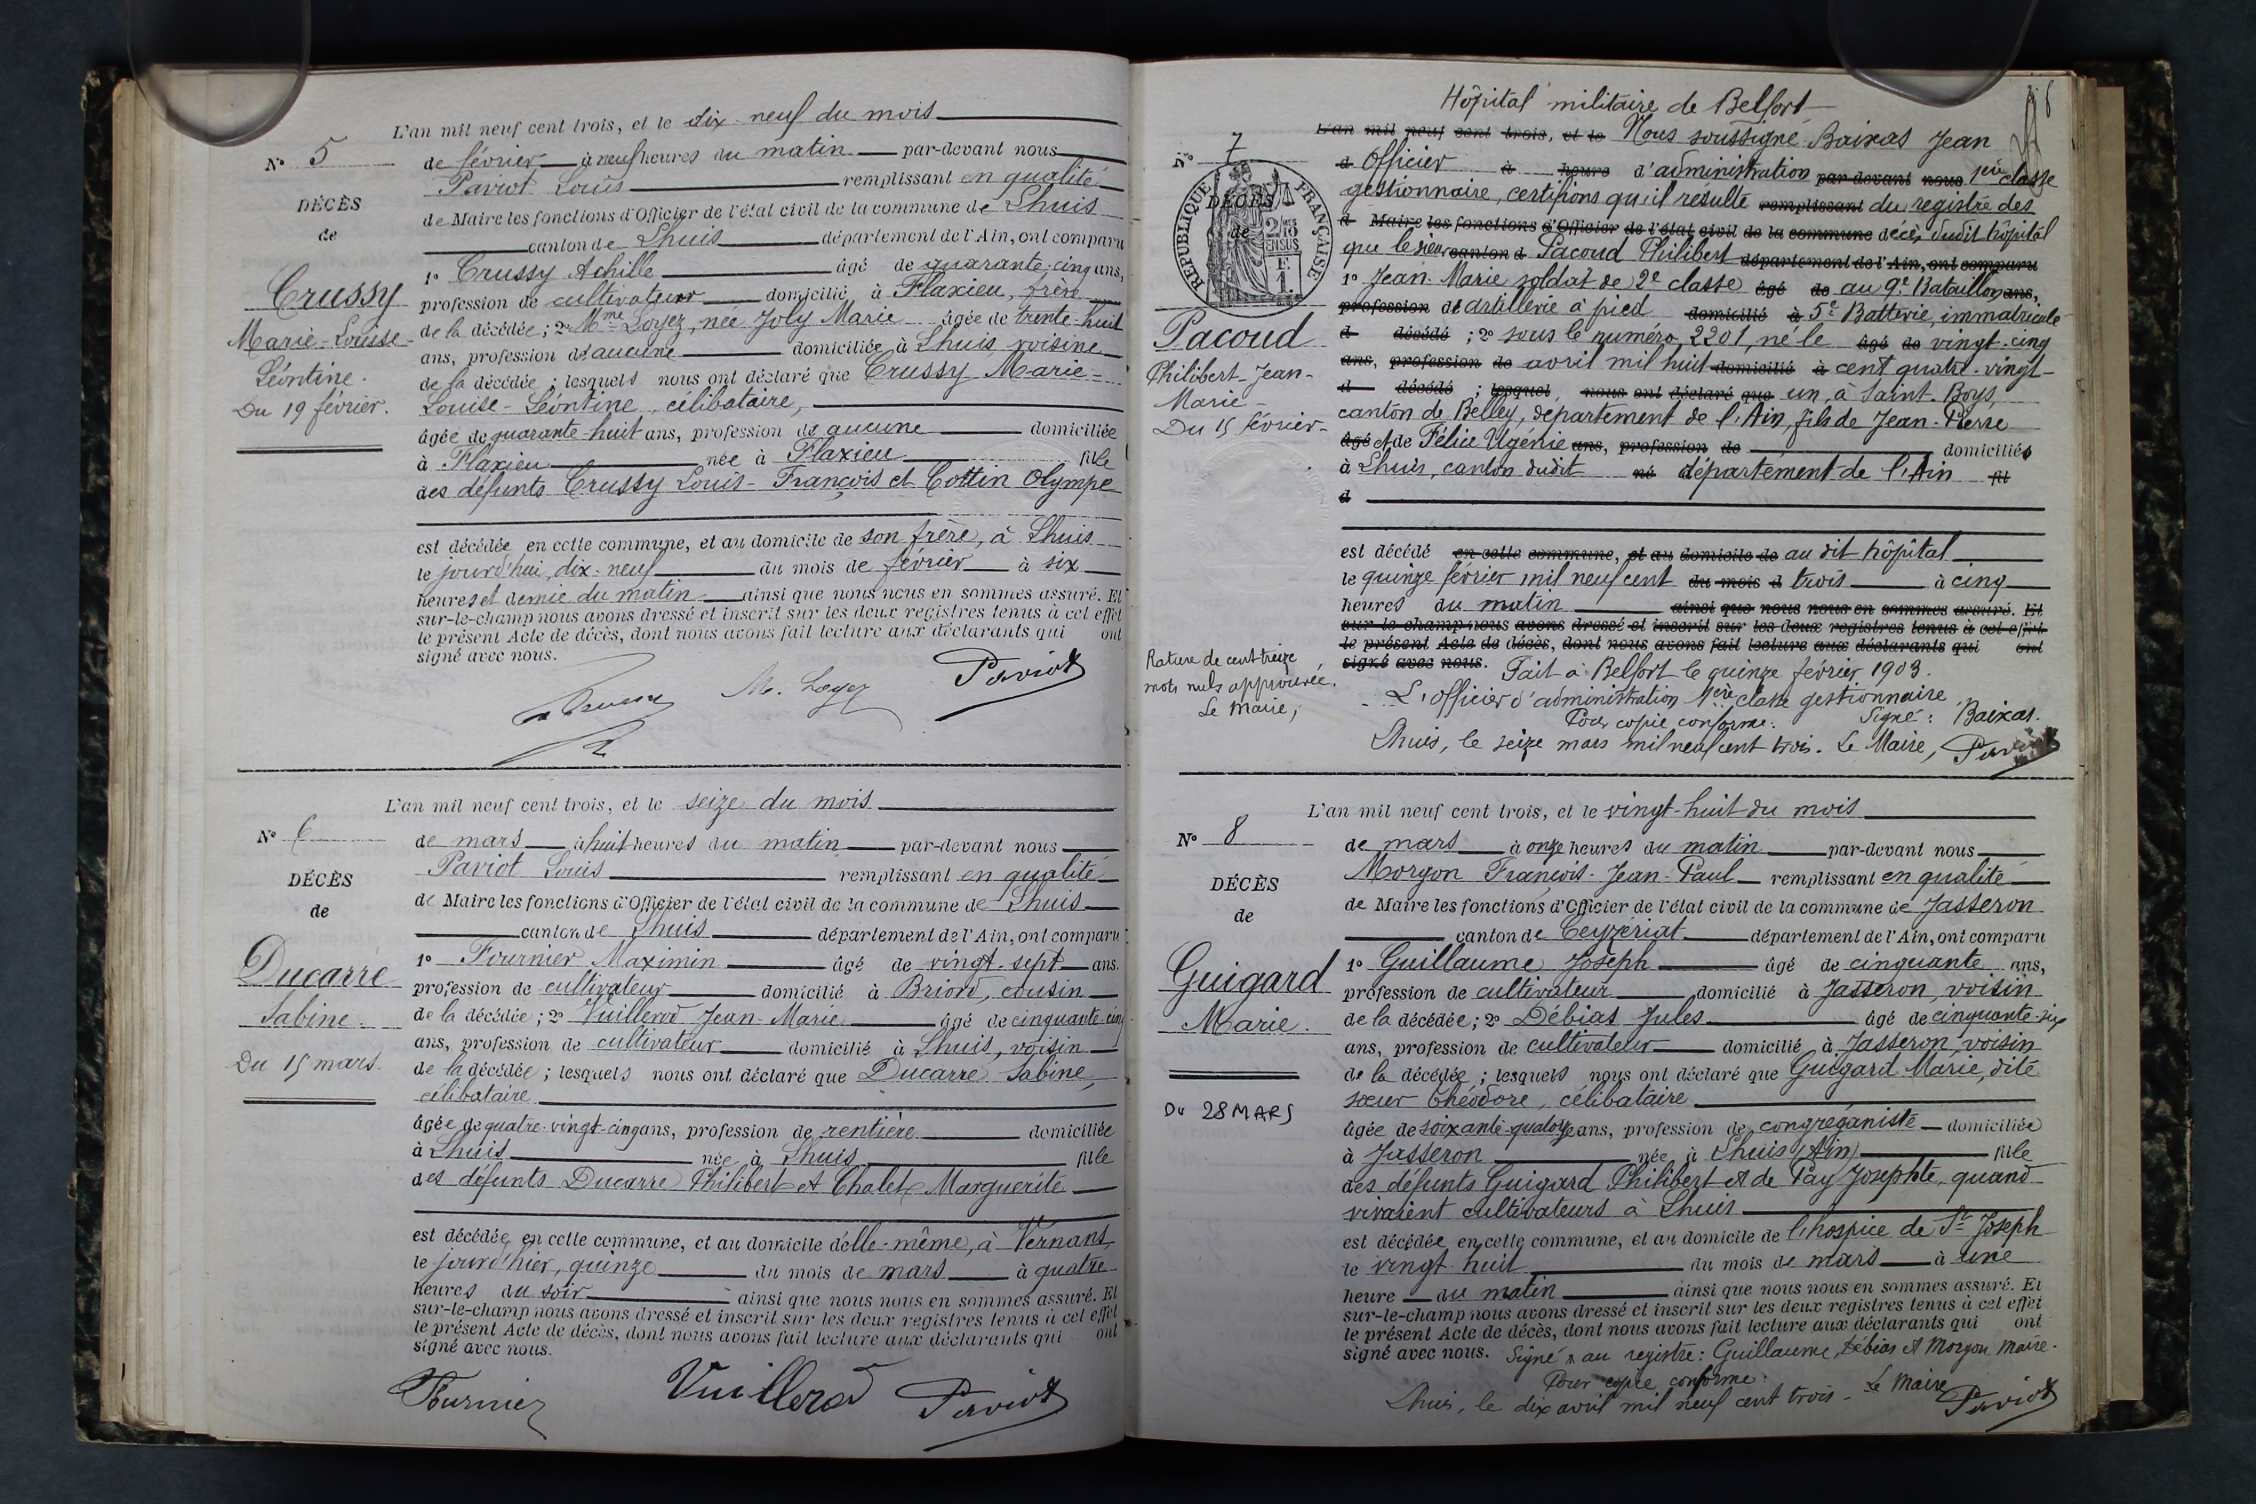 L'an mil neuf cent trois, et le dix-neuf du mois
N° 5
de février à neuf heures du matin par-devant nous
Paviot Louis remplissant en qualité
DÉCÈS
de Maire les fonctions d'Officier de l'état civil de la commune de Lhuis
de
canton de Lhuis département de l'Ain, ont comparu
1° Crussy Achille âgé de quarante-cinq ans,
Crussy
profession de cultivateur domicilié à Flaxieu, frère
Marie-Louise-
de la décédée; 2° Mme Loyez, née Joly Marie âgée de trente-huit
ans, profession d'aucune domiciliée à Lhuis, voisine
Léontine.
de la décédée; lesquels nous ont déclaré que Crussy Marie-
Du 19 février.
Louise-Léontine, célibataire,
âgée de quarante-huit ans, profession de aucune domiciliée
à Flaxieu née à Flaxieu fille
des défunts Crussy Louis-François et Cottin Olympe
est décédée en cette commune, et au domicile de son frère, à Lhuis
le jourd'hui, dix-neuf du mois de février à six
heures et demie du matin ainsi que nous nous en sommes assuré. Et
sur-le-champ nous avons dressé et inscrit sur les deux registres tenus à cet effet
le présent Acte de décès, dont nous avons fait lecture aux déclarants qui ont
signé avec nous.
M. Loyez Paviot
L'an mil neuf cent trois, et le seize du mois
N° 6
de mars à huit heures du matin par-devant nous
Paviot Louis remplissant en qualité
DÉCÈS
de Maire les fonctions d'Officier de l'état civil de la commune de Lhuis
de
canton de Lhuis département de l'Ain, ont comparu
1° Fournier Maximin âgé de vingt-sept ans.
Ducarre
profession de cultivateur domicilié à Briord, cousin
Sabine.
de la décédée; 2° Vuillerod Jean-Marie âgé de cinquante-cinq
ans, profession de cultivateur domicilié à Lhuis, voisin
Du 15 mars.
de la décédée; lesquels nous ont déclaré que Ducarre Sabine,
célibataire
âgée de quatre-vingt-cinq ans, profession de rentière domiciliée
à Lhuis née à Lhuis fille
des défunts Ducarre Philibert et Chalet Marguerite
est décédée en cette commune, et au domicile d'elle-même, à Vernans
le jour d'hier, quinze du mois de mars à quatre
heures du soir ainsi que nous nous en sommes assuré. Et
sur-le-champ nous avons dressé et inscrit sur les deux registres tenus à cet effet
le présent Acte de décès, dont nous avons fait lecture aux déclarants qui ont
signé avec nous.
Fournier Vuillerod Paviot
Hôpital militaire de Belfort
L'an mil neuf cent trois, et le Nous soussigné Baixas Jean
N° 7
d Officier à heure d'administration par-devant nous 1ère classe
gestionnaire, certifions qu'il résulte remplissant du registre des
RÉPUBLIQUE FRANÇAISE
DÉCÈS
d Maire les fonctions d'Officier de l'état civil de la commune décès dudit hôpital
de
que le sieur canton d Pacoud Philibert département de l'Ain, ont comparu
1° Jean-Marie soldat de 2e classe âgé de au 9e Bataillon ans,
profession de artillerie à pied domicilié à 5e Batterie, immatriculé
Pacoud
d décédé; 2° sous le numéro 2201, né le âgé de vingt-cinq
Philibert-Jean-
ans, profession de avril mil huit domicilié à cent quatre-vingt-
Marie
d décédé; lesquel nous ont déclaré que un, à Saint-Boys,
Du 15 février-
canton de Belley, département de l'Ain, fils de Jean-Pierre
âgé et de Félice Ugénie ans, profession de domiciliés
à Lhuis, canton dudit né département de l'Ain fil
d
est décédé en cette commune, et au domicile de au dit hôpital
le quinze février mil neuf cent du mois d trois à cinq
heures du matin ainsi que nous nous en sommes assuré. Et
sur-le-champ nous avons dressé et inscrit sur les deux registres tenus à cet effet
le présent Acte de décès, dont nous avons fait lecture aux déclarants qui ont
signé avec nous. Fait à Belfort le quinze février 1903.
Rature de cent treize
mots nuls approuvée.
Le Maire,
L'officier d'administration 1ère classe gestionnaire
Pour copie conforme: Signé: Baixas.
Lhuis, le seize mars mil neuf cent trois. Le Maire, Paviot
L'an mil neuf cent trois, et le vingt-huit du mois
N° 8
de mars à onze heures du matin par-devant nous
Morgon François-Jean-Paul remplissant en qualité
DÉCÈS
de Maire les fonctions d'Officier de l'état civil de la commune de Jasseron
de
canton de Ceyzériat département de l'Ain, ont comparu
1° Guillaume Joseph âgé de cinquante ans,
Guigard
profession de cultivateur domicilié à Jasseron, voisin
Marie.
de la décédée; 2° Débias Jules âgé de cinquante-six
ans, profession de cultivateur domicilié à Jasseron, voisin
de la décédée; lesquels nous ont déclaré que Guigard Marie, dite
Du 28 MARS
sœur Théodore, célibataire
âgée de soixante-quatorze ans, profession de congréganiste domiciliée
à Jasseron née à Lhuis (Ain) fille
des défunts Guigard Philibert et de Pay Josephte, quand
vivaient cultivateurs à Lhuis
est décédée en cette commune, et au domicile de l'hospice de St Joseph
le vingt-huit du mois de mars à une
heure du matin ainsi que nous nous en sommes assuré. Et
sur-le-champ nous avons dressé et inscrit sur les deux registres tenus à cet effet
le présent Acte de décès, dont nous avons fait lecture aux déclarants qui ont
signé avec nous. Signé au registre: Guillaume, Débias et Morgon Maire.
Pour copie conforme:
Lhuis, le dix avril mil neuf cent trois - Le Maire Paviot